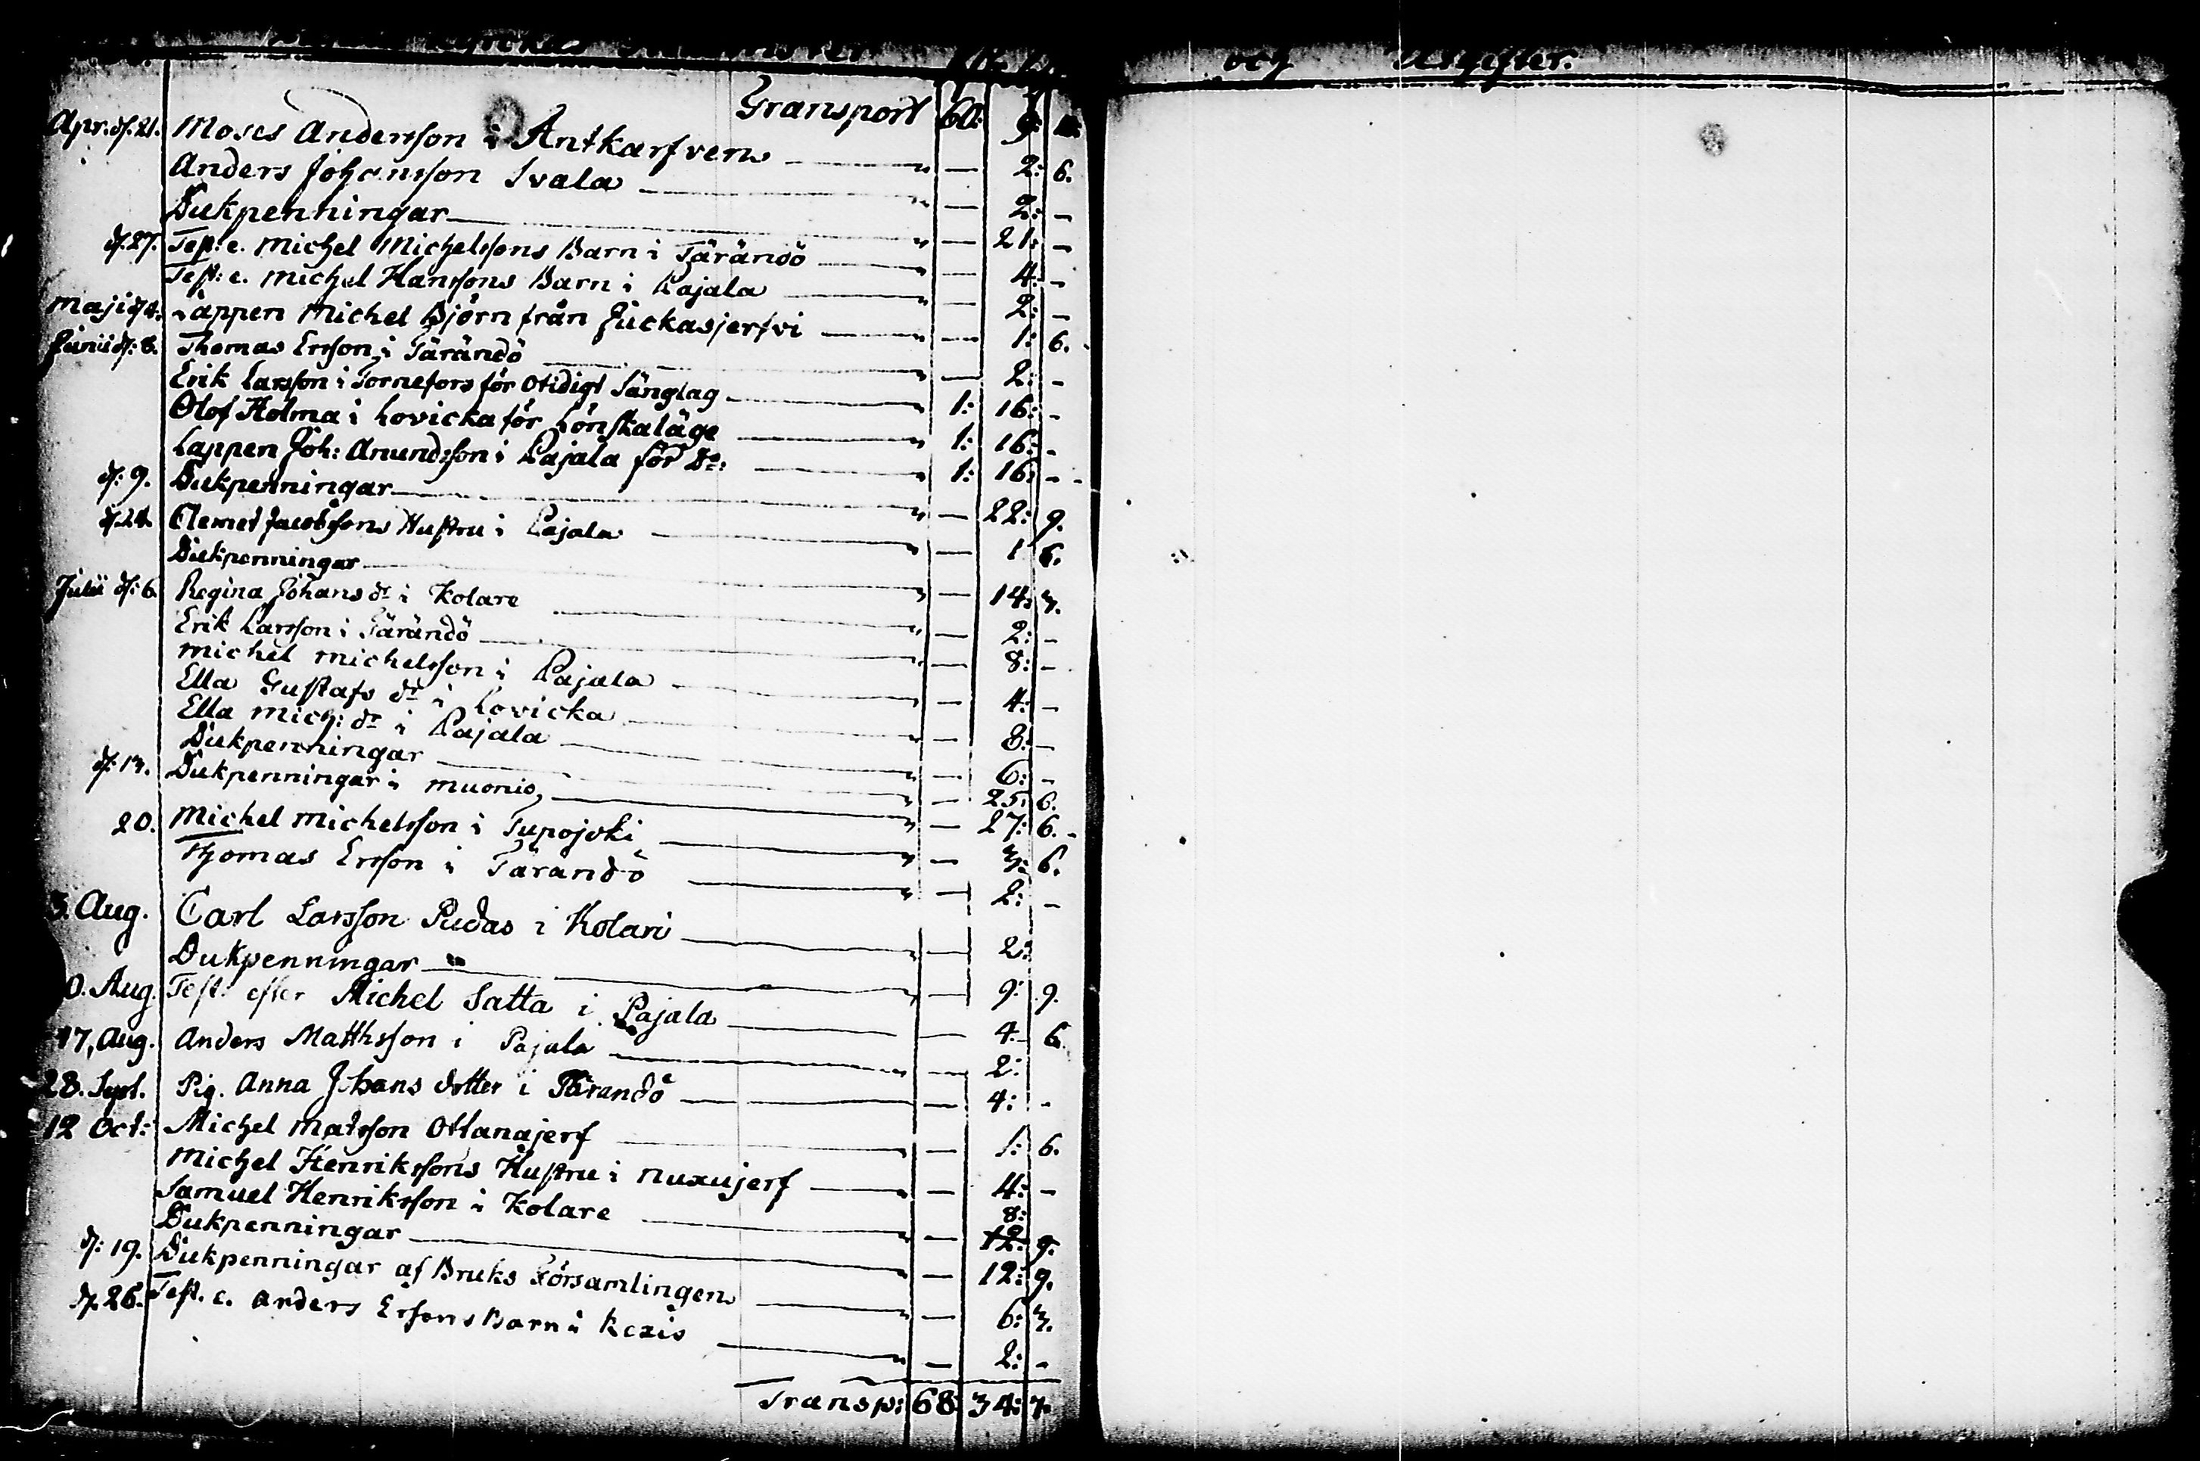 och Utgifter.
Transport 60: 9:
Apr. d. 21. Moses Andersson i Antkarfven " — 2: 6.
Anders Johansson Svala " — 2: —
Dukpenningar " — 21: —
d. 27. Test: e. Michel Michelssons Barn i Tärändö " — 4: —
Test: e. Michel Hanssons Barn i Pajala " — 2: —
Maji Lappen Michel Björn från Juckasjerfvi " — 1: 6.
Junii d: 8. Thomas Ersson i Tärändö " — 2: —
Erik Larsson i Tornefors för otidigt Sänglag " 1: 16: —
Olof Kolma i Lovicka för Lönskaläge " 1: 16: —
Lappen Joh: Anundsson i Pajala för Do: " 1: 16: —
d: 9. Dukpenningar " — 22: 9.
d. 24. Clemet Jacobssons Hustru i Pajala " — 1 6.
Dukpenningar " — 14: 3.
Julii d: 6. Regina Johans dr i Kolare " — 2: —
Erik Larsson i Tärändö " — 8: —
Michel Michelsson i Pajala " — 4: —
Ella Gustafs dr i Lovicka " — 8: —
Ella Mich: dr i Pajala " — 6: —
Dukpenningar " — 25: 6.
d: 13. Dukpenningar i Muonis, " — 27: 6.
20. Michel Michelsson i Tupojoki " — 3: 6.
Thomas Ersson i Tärandö " — 2: —
3. Aug. Carl Larsson Pudas i Kolari — 2:
Dukpenningar — 9: 9.
0. Aug. Test: efter Michel Satta i Pajala — 4. 6.
17, Aug. Anders Matthsson i Pajala — 2:
28. Sept. Pig. Anna Johans dotter i Tärandö — 4: -
12 Oct: Michel Matsson Ottanajerf " — 1: 6.
Michel Henrikssons Hustru i Nuxujerf " — 4: —
Samuel Henriksson i Kolare 8:
Dukpenningar " — 12: 9.
d: 19. Dukpenningar af Bruks Församlingen " — 12: 9.
d. 26. Test. e. Anders Ersons Barn i Kexis " — 6: 3.
" — 2: -
Transp: 68: 34: 7.